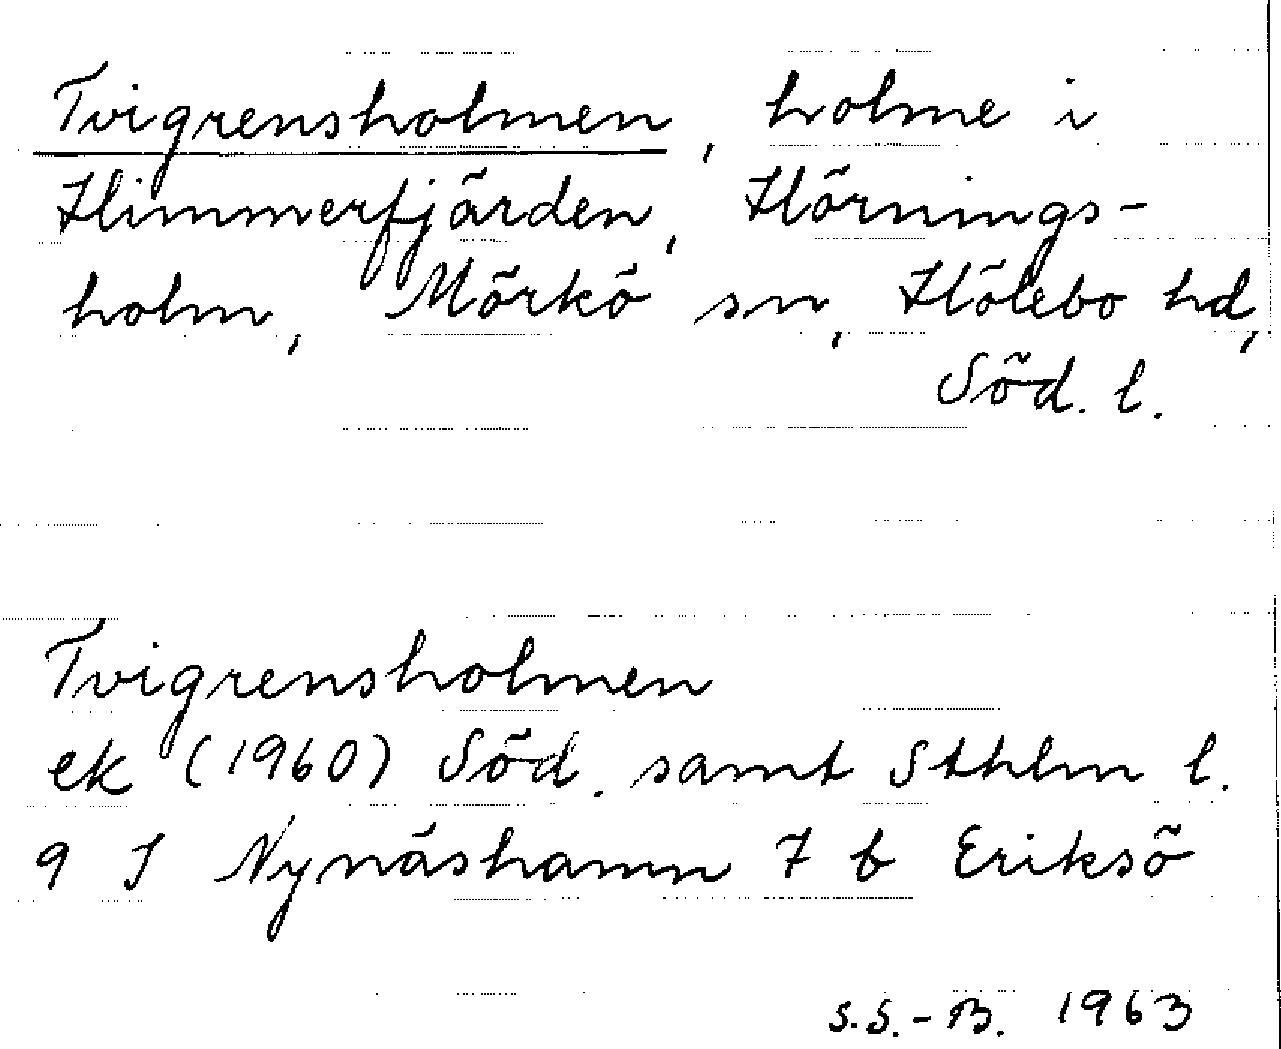 Tvigrensholmen, holme i
Himmerfjärden, Hörnings-
holm, Mörkö sn, Hölebo hd,
Söd. l.
Tvigrensholmen
ek (1960) Söd. samt Sthlm l.
9 I Nynäshamn 7 b Eriksö
S.S.-B. 1963